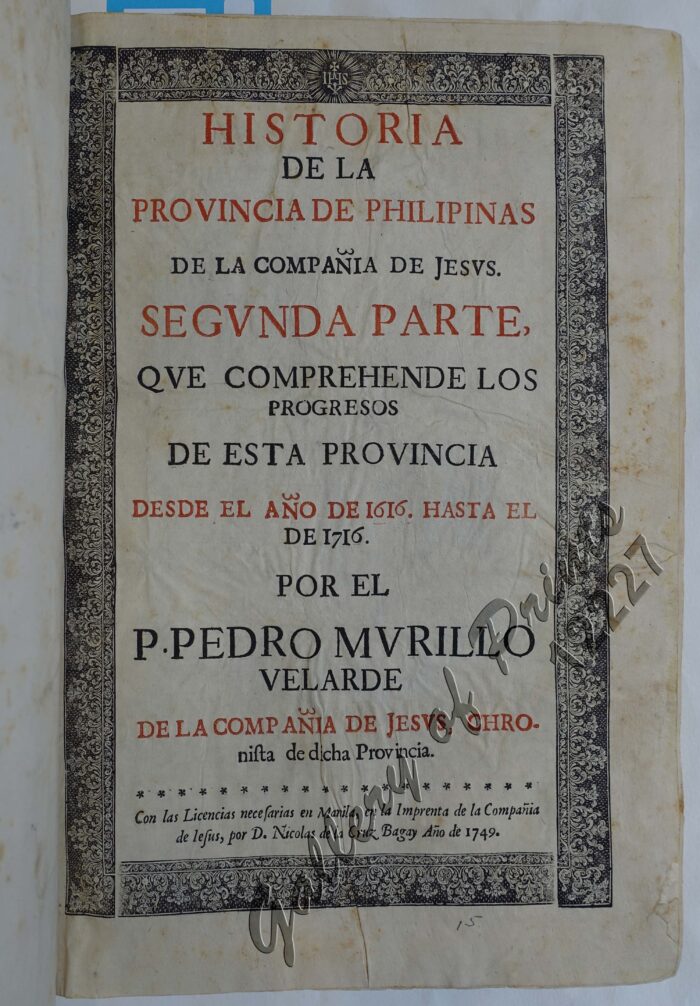 IHS
HISTORIA
DE LA
PROVINCIA DE PHILIPINAS
DE LA COMPAÑIA DE JESVS.
SEGVNDA PARTE,
QVE COMPREHENDE LOS
PROGRESOS
DE ESTA PROVINCIA
DESDE EL AÑO DE 1616. HASTA EL
DE 1716.
POR EL
P. PEDRO MVRILLO
VELARDE
DE LA COMPAÑIA DE JESVS, CHRO-
niſta de dicha Provincia.
* * * * * * * * * * * * * * * * * * *
Con las Licencias neceſarias en Manila, en la Imprenta de la Compañia
de Ieſus, por D. Nicolas de la Cruz Bagay Año de 1749.
15
Gallery of Prints
12227